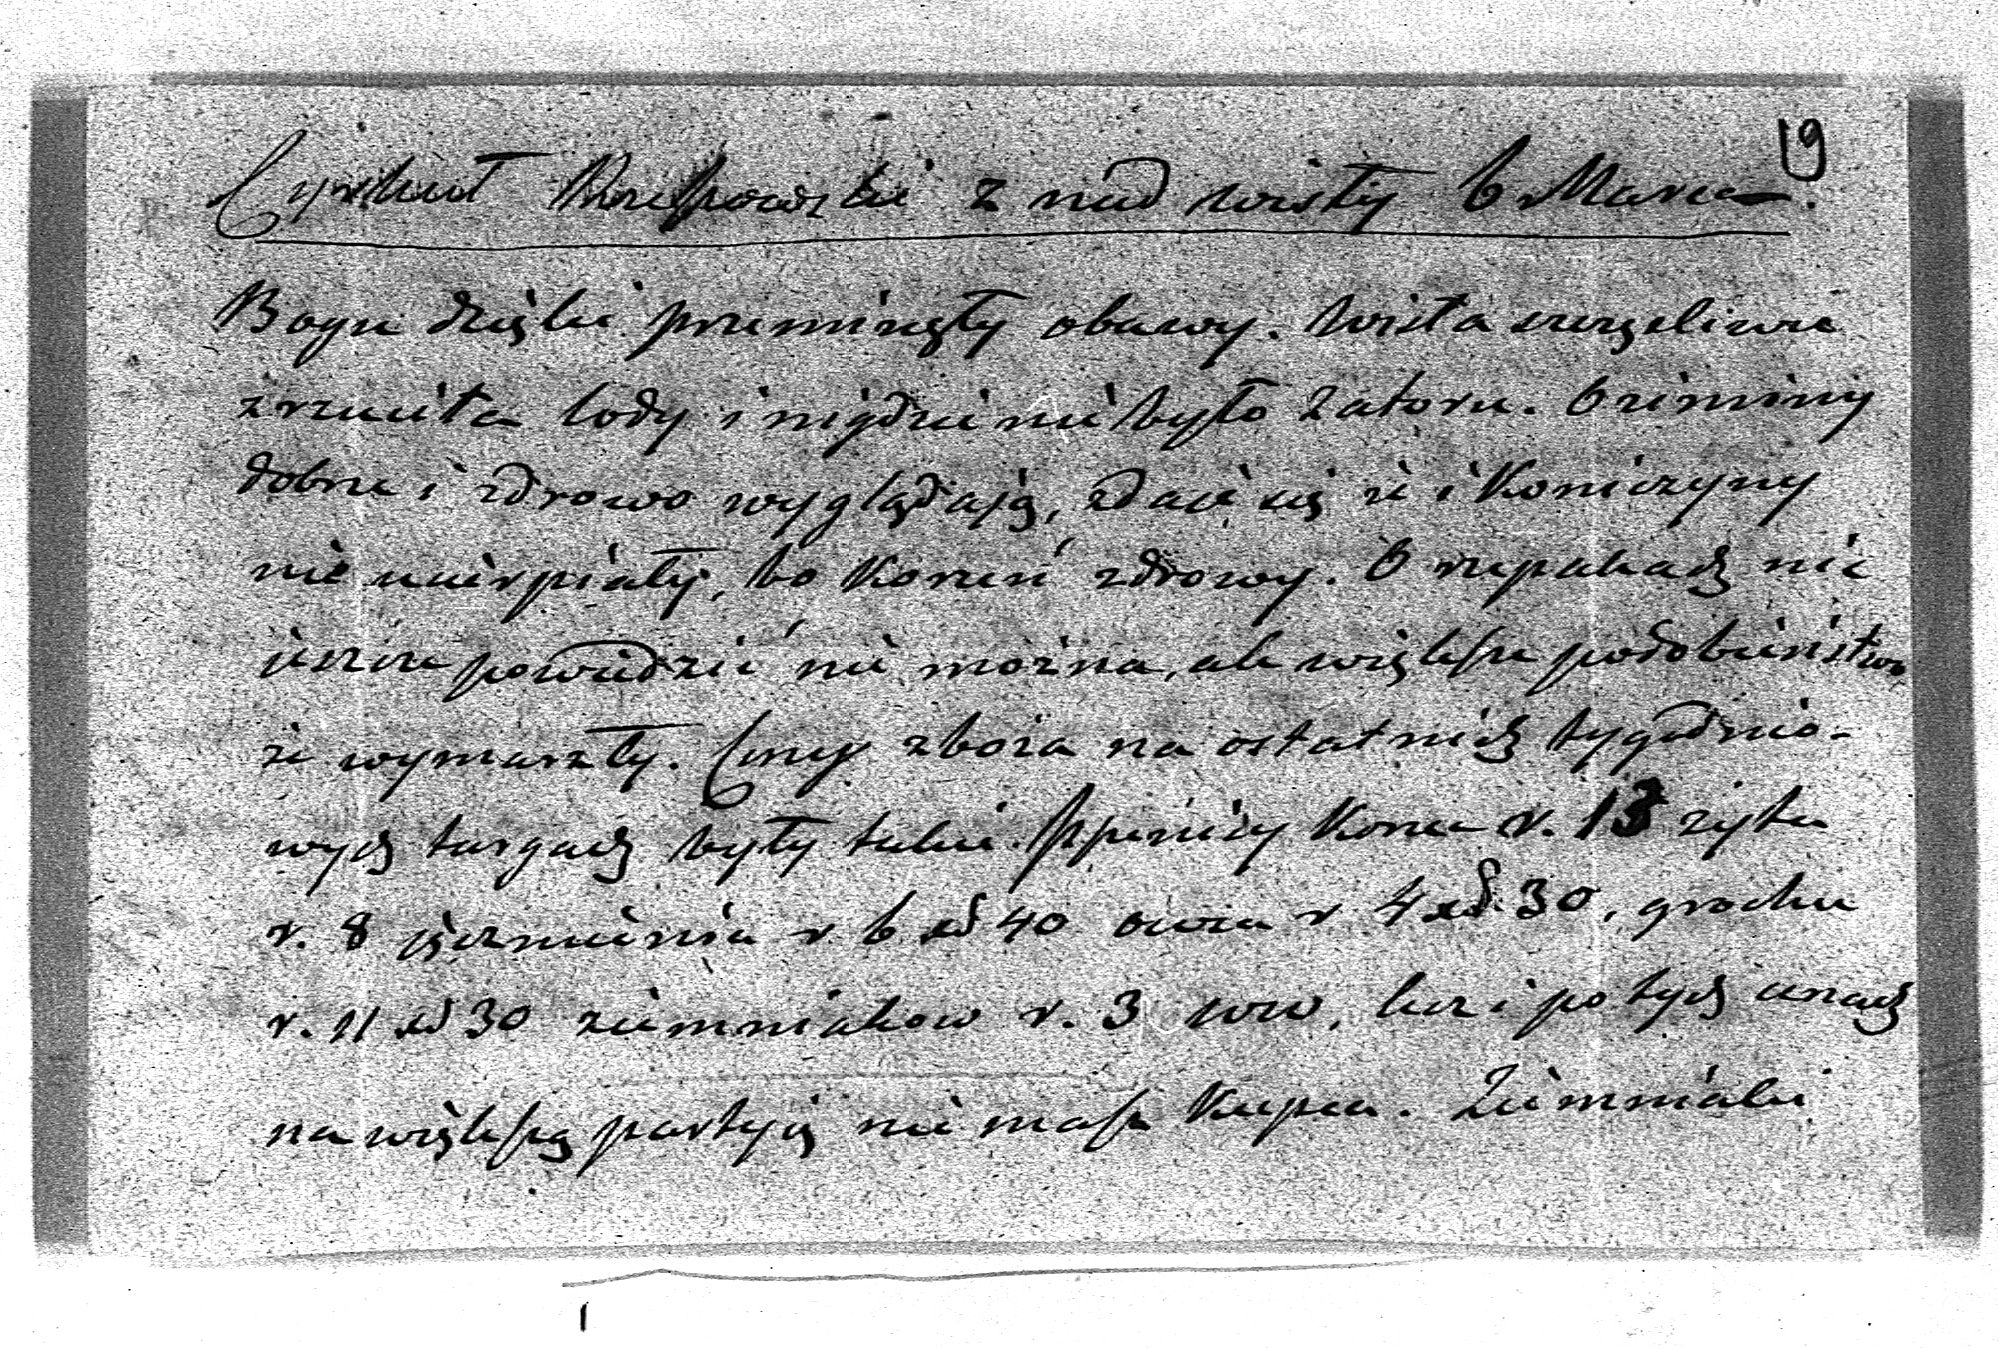 19
Cyrkuł Rzeszowski z nad Wisły 6 Marca.
Bogu dzięki przeminęły obawy. Wisła szczęśliwie
zrzuciła lody i nigdzie nie było zatoru. Oziminy
dobrze i zdrowo wyglądają, zdaje się że i Koniczyny
nie ucierpiały, bo Korzeń zdrowy. O rzepakach nic
jeszcze powiedzieć nie można, ale większe podobieństwo
że wymarzły. Ceny zboża na ostatnich tygodnio-
wych targach były takie. Pszenicy Korzec r. 13 żyta
r. 8 jęczmienia r 6 xr 40 owsa r 4 xr 30, grochu
r. 11 xr 30 ziemniakow r. 3 ww, lecz i po tych cenach
na większą partyją nie masz Kupca. Ziemniaki